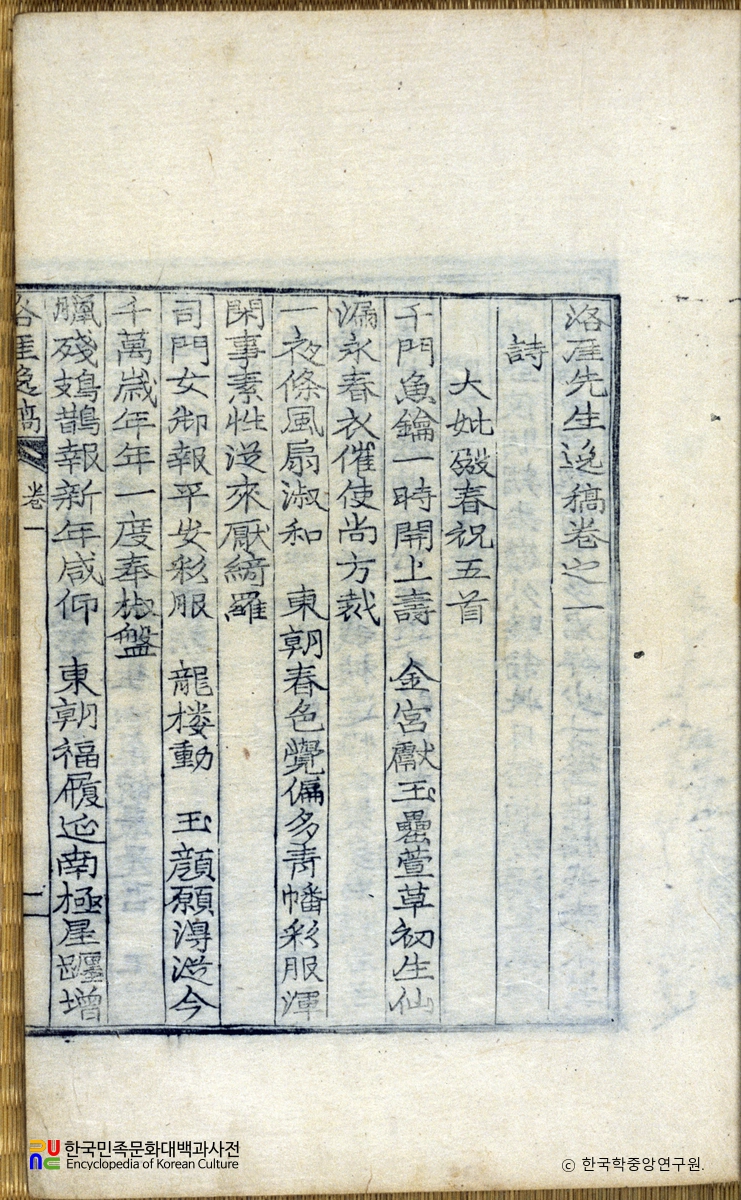 洛厓先生逸稿卷之一
詩
大妣殿春祝五首
千門魚鑰一時開上壽 金宮獻玉罍萱草初生仙
漏永春衣催使尚方裁
一夜條風扇淑和 東朝春色覺偏多靑幡彩服渾
閑事素性從來厭綺羅
司門女御報平安彩服 龍樓動 玉顔願得從今
千萬歲年年一度奉椒盤
臘殘鳷鵲報新年咸仰 東朝福履延南極星躔增
洛厓逸稿 卷一 一
한국민족문화대백과사전
Encyclopedia of Korean Culture
ⓒ 한국학중앙연구원.